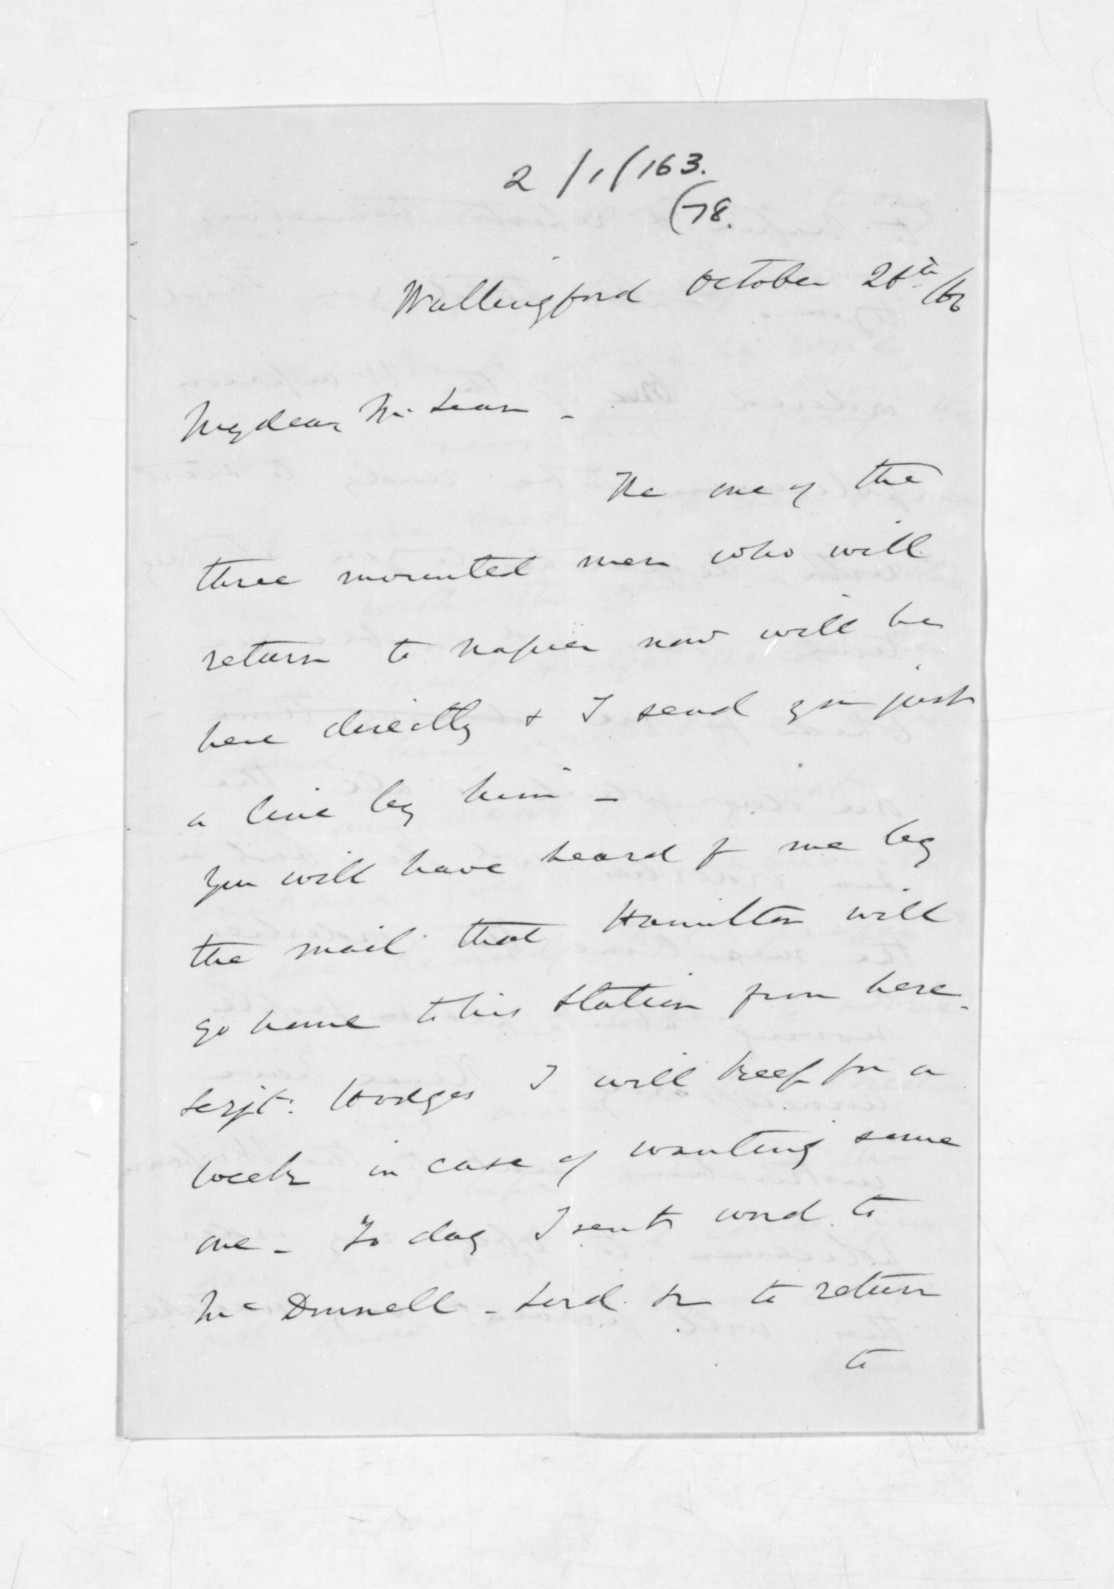 2/1/163.
(78.
Wallingford October 28th/66
My dear McLean -
The one of the
three mounted men who will
return to Napier now will be
here directly & I send you just
a line by him -
You will have heard f me by
the mail that Hamilton will
go home to his Station from here.
Serjt. Hodges I will keep for a
week in case of wanting some
one - To day I sent word to
McDonnell - to return
to